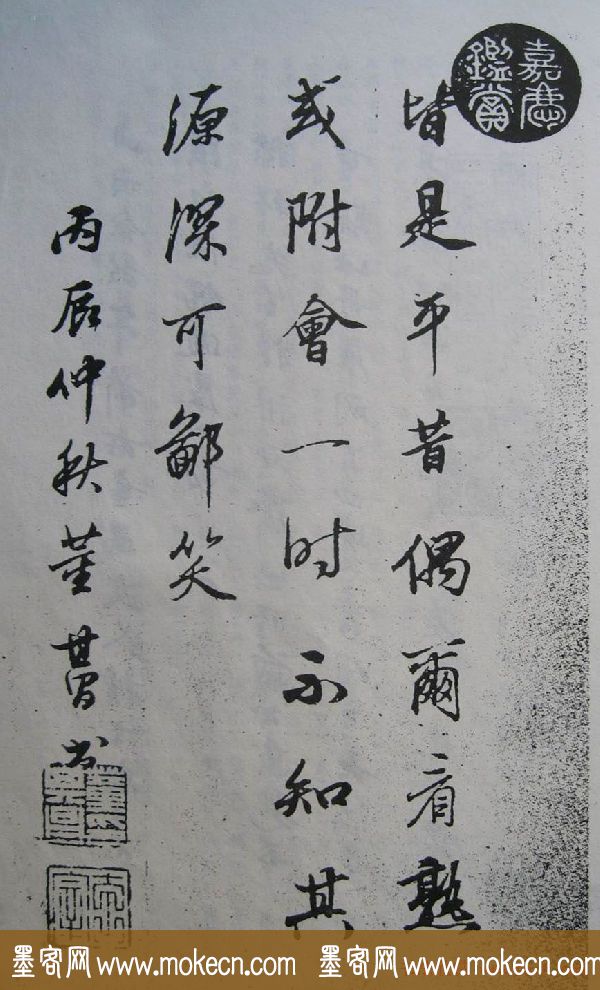 嘉慶鑑賞
皆是平昔偶爾看熟
或附會一时不知其
源深可鄙笑
丙辰仲秋董其昌书
墨客网 www.mokecn.com 墨客网 www.mokecn.com